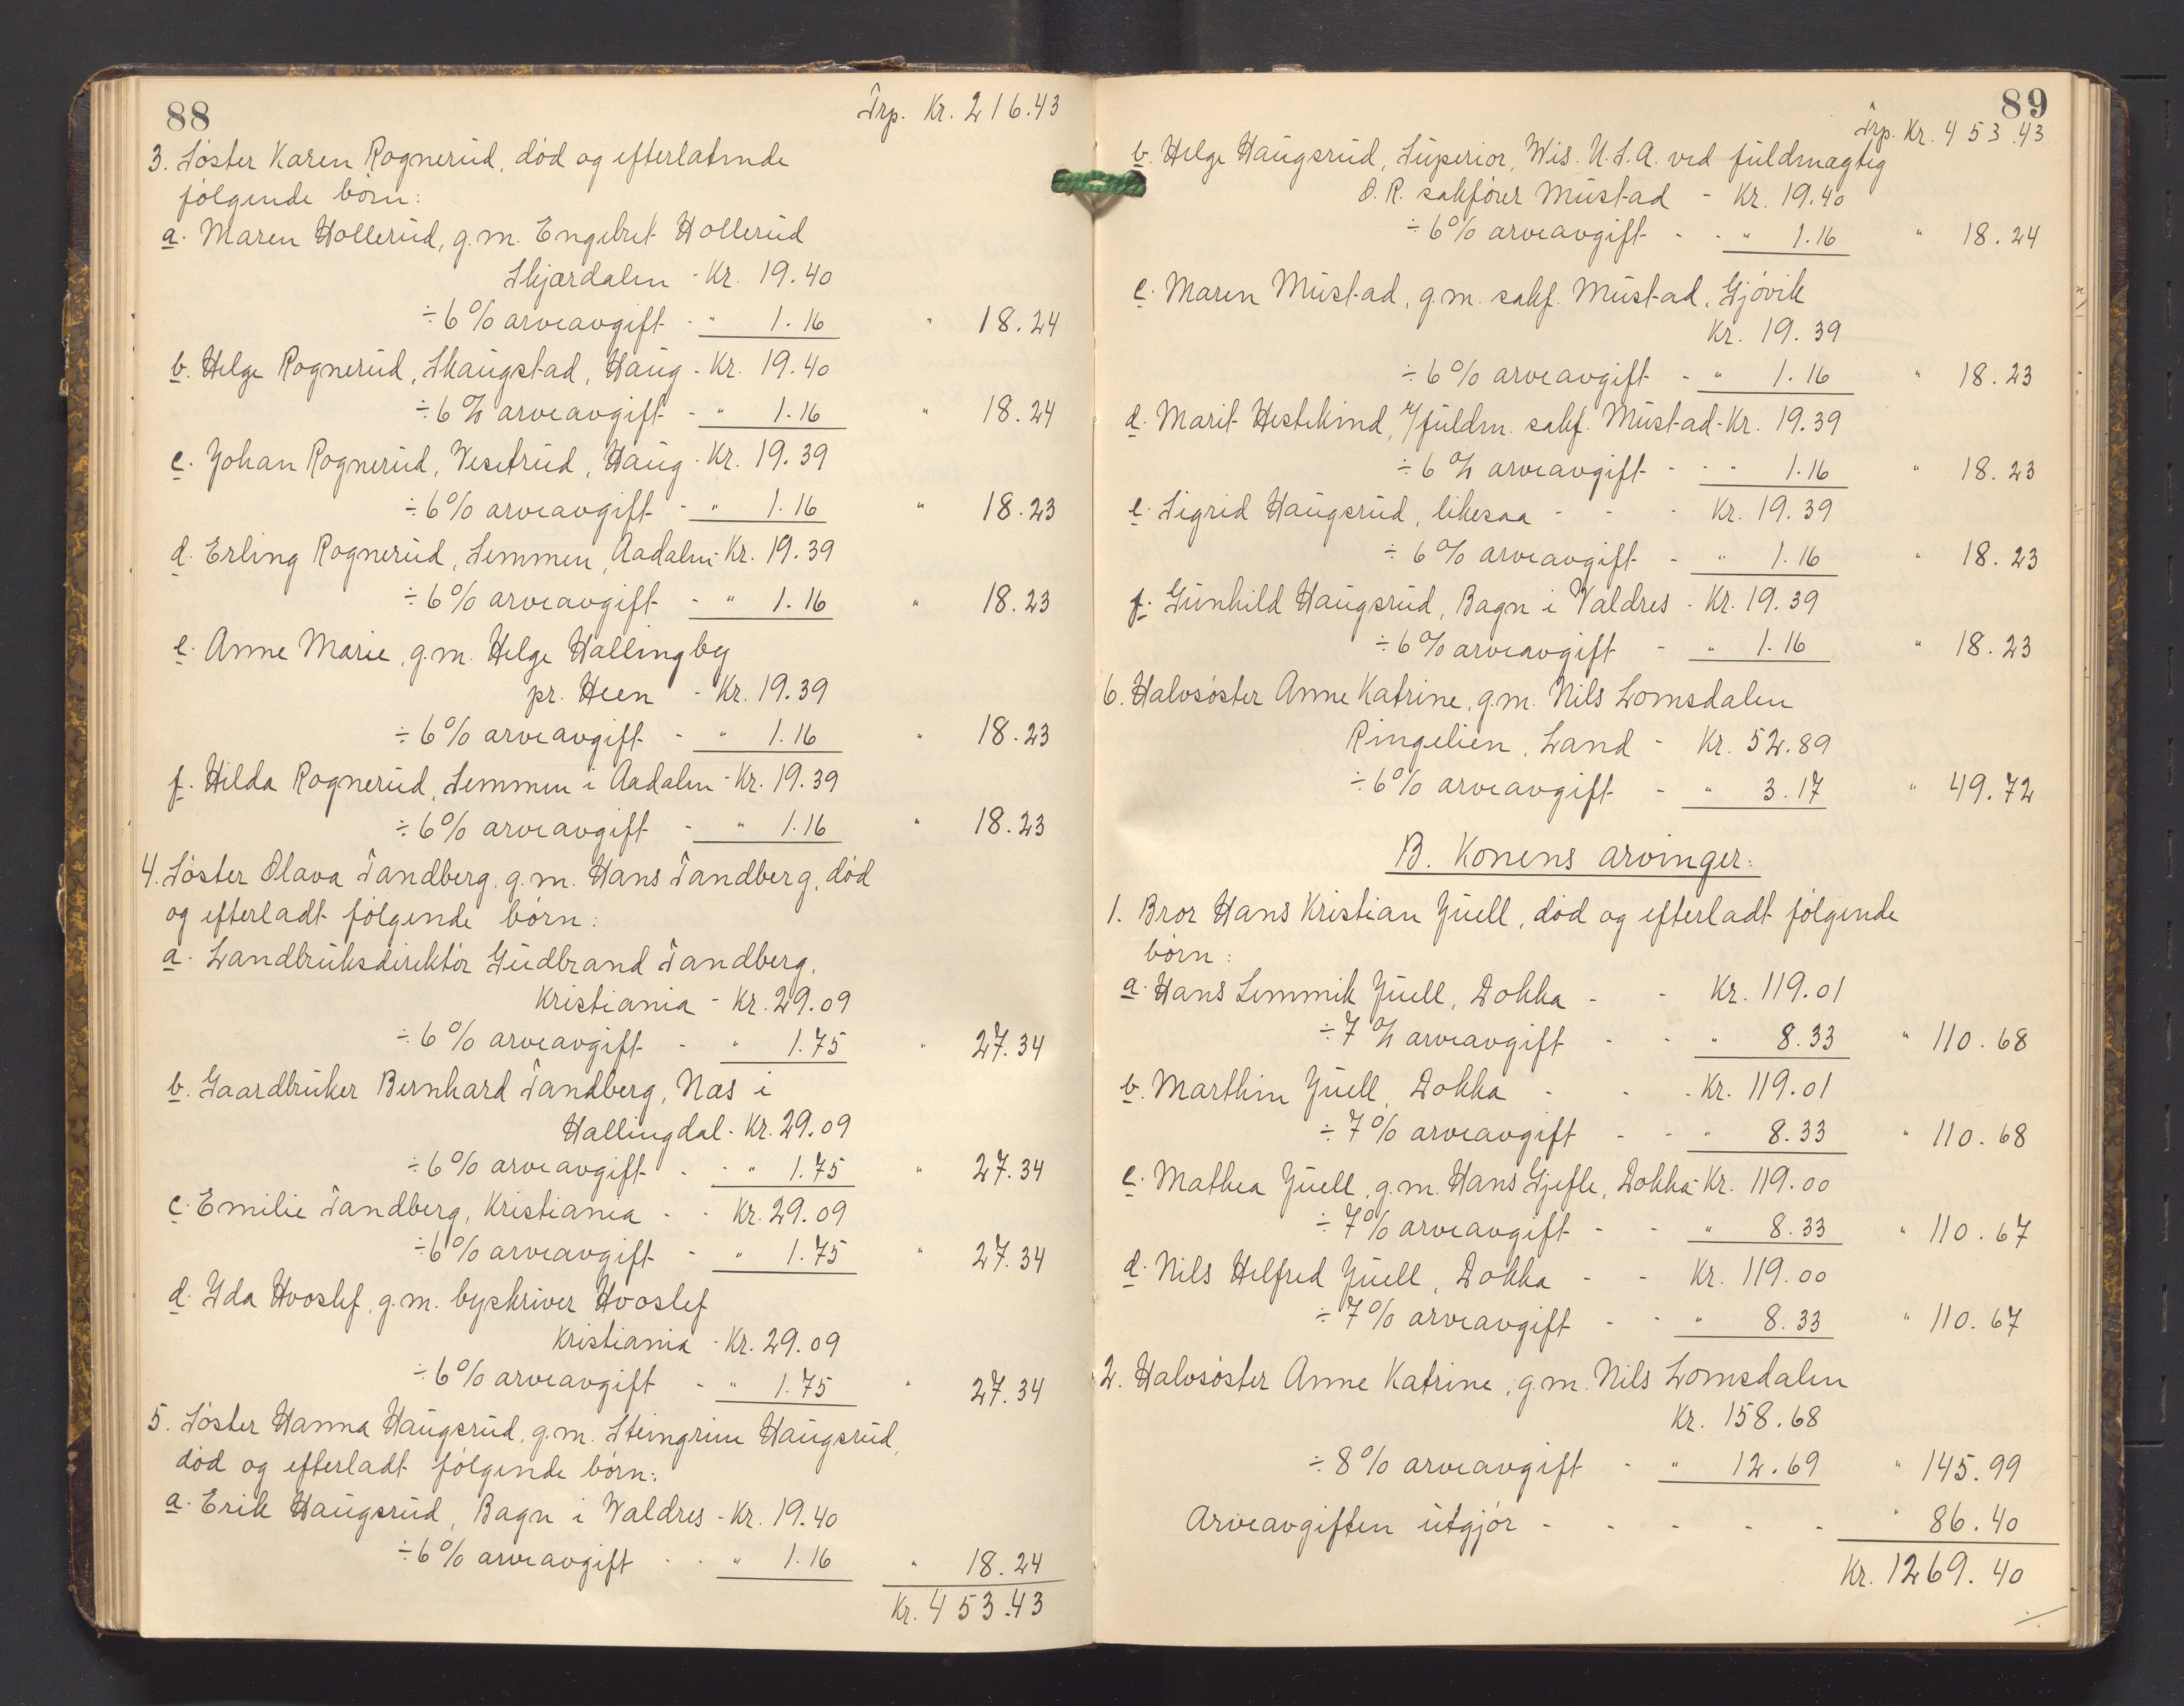 88
Trp. Kr. 216.43
3. Söster Karen Rognerud, död og efterlatende
fölgende börn:
a. Maren Hollerud, g.m. Engebret Hollerud
Skjærdalen - Kr. 19.40
÷ 6 % arveavgift - " 1.16 " 18.24
b. Helge Rognerud, Skaugstad, Haug - Kr. 19.40
÷ 6 % arveavgift - " 1.16 " 18.24
c. Johan Rognerud, Vesetrud, Haug - Kr. 19.39
÷ 6 % arveavgift - " 1.16 " 18.23
d. Erling Rognerud, Semmen, Aadalen - Kr. 19.39
÷ 6 % arveavgift - " 1.16 " 18.23
e. Anne Marie, g.m. Helge Hallingby
pr. Heen - Kr. 19.39
÷ 6 % arveavgift - " 1.16 " 18.23
f. Hilda Rognerud, Semmen i Aadalen - Kr. 19.39
÷ 6 % arveavgift - " 1.16 " 18.23
4. Söster Olava Tandberg, g.m. Hans Tandberg, död
og efterladt fölgende börn:
a. Landbruksdirektör Gudbrand Tandberg,
Kristiania - Kr. 29.09
÷ 6 % arveavgift - " 1.75 " 27.34
b. Gaardbruker Bernhard Tandberg, Næs i
Hallingdal - Kr. 29.09
÷ 6 % arveavgift - - " 1.75 " 27.34
c. Emilie Tandberg, Kristiania - - Kr. 29.09
÷ 6 % arveavgift - " 1.75 " 27.34
d. Yda Hvoslef, g.m. byskriver Hvoslef
Kristiania - Kr. 29.09
÷ 6 % arveavgift - " 1.75 " 27.34
5. Söster Hanna Haugsrud, g.m. Steingrim Haugsrud,
död og efterladt fölgende börn:
a. Erik Haugsrud, Bagn i Valdres - Kr. 19.40
÷ 6 % arveavgift - - " 1.16 " 18.24
Kr. 453.43
89
Trp. Kr. 453.43
b. Helge Haugsrud, Superior, Wis. U.S.A. ved fuldmægtig
O.R. sakförer Mustad - Kr. 19.40
÷ 6 % arveavgift - - " 1.16 " 18.24
c. Maren Mustad, g.m. sakf. Mustad, Gjövik
Kr. 19.39
÷ 6 % arveavgift - " 1.16 " 18.23
d. Marit Hestekind, v/fuldm. sakf. Mustad - Kr. 19.39
÷ 6 % arveavgift - - " 1.16 " 18.23
e. Sigrid Haugsrud, likesaa - - - Kr. 19.39
÷ 6 % arveavgift - " 1.16 " 18.23
f. Gunhild Haugsrud, Bagn i Valdres - Kr. 19.39
÷ 6 % arveavgift - " 1.16 " 18.23
6. Halvsöster Anne Katrine, g.m. Nils Lomsdalen
Ringelien, Land - Kr. 52.89
÷ 6 % arveavgift - " 3.17 " 49.72
B. Konens arvinger:
1. Bror Hans Kristian Juell, död og efterladt fölgende
börn:
a. Hans Lemmik Juell, Dokka - - Kr. 119.01
÷ 7 % arveavgift - - " 8.33 " 110.68
b. Marthin Juell, Dokka - - - Kr. 119.01
÷ 7 % arveavgift - - " 8.33 " 110.68
c. Mathea Juell, g.m. Hans Gjefle, Dokka - Kr. 119.00
÷ 7 % arveavgift - - " 8.33 " 110.67
d. Nils Helfred Juell, Dokka - - Kr. 119.00
÷ 7 % arveavgift - - " 8.33 " 110.67
2. Halvsöster Anne Katrine, g.m. Nils Lomsdalen
Kr. 158.68
÷ 8 % arveavgift - " 12.69 " 145.99
Arveavgiften utgjör - - - - - " 86.40
Kr. 1269.40